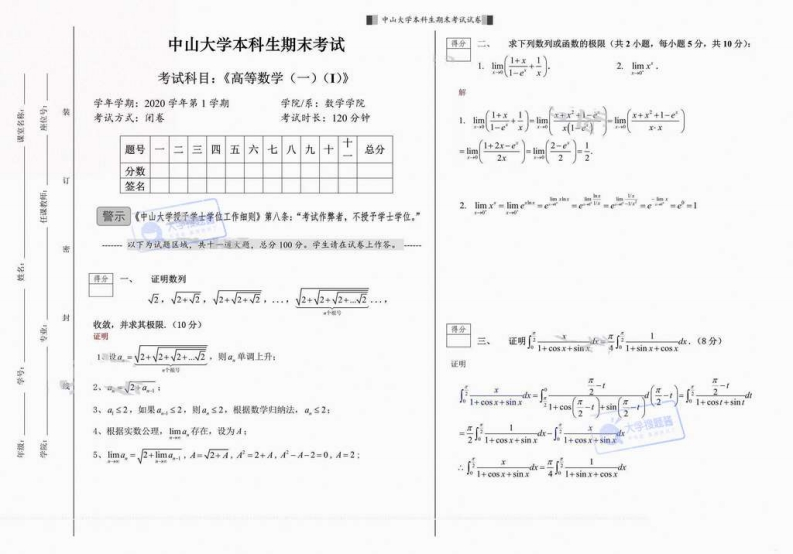 中山大学本科生期末考试试卷
中山大学本科生期末考试
考试科目：《高等数学（一）(I)》
学年学期：2020 学年第 1 学期 学院/系：数学学院
考试方式：闭卷 考试时长：120 分钟
题号 一 二 三 四 五 六 七 八 九 十 十一 总分
分数
签名
警示 《中山大学授予学士学位工作细则》第八条：“考试作弊者，不授予学士学位。”
------- 以下为试题区域，共十一道大题，总分 100 分。学生请在试卷上作答。 ------
得分 一、 证明数列
√2 , √(2+√2) , √(2+√(2+√2)) , ... , √(2+√(2+√(2+...√2))) ... ,
n个根号
收敛，并求其极限.（10 分）
证明
1、设 a_n = √(2+√(2+√(2+...√2))) ，则 a_n 单调上升；
n个根号
2、a_n = √(2+a_{n-1}) ；
3、a_1 ≤ 2，如果 a_{n-1} ≤ 2，则 a_n ≤ 2，根据数学归纳法，a_n ≤ 2；
4、根据实数公理，lim_{n→∞} a_n 存在，设为 A；
5、lim_{n→∞} a_n = √(2+lim_{n→∞} a_{n-1}) , A = √(2+A) , A² = 2+A , A²−A−2=0 , A=2；
装
订
密
封
线
年级：
学号：
姓名：
课室名称：
学院：
专业：
任课教师：
座位号：
得分 二、 求下列数列或函数的极限（共 2 小题，每小题 5 分，共 10 分）：
1. lim_{x→0} ((1+x)/(1−e^x) + 1/x). 2. lim_{x→0⁺} x^x .
解
1. lim_{x→0} ((1+x)/(1−e^x) + 1/x) = lim_{x→0} ((x+x²+1−e^x)/(x(1−e^x))) = lim_{x→0} ((x+x²+1−e^x)/(x·x))
= lim_{x→0} ((1+2x−e^x)/(2x)) = lim_{x→0} ((2−e^x)/2) = 1/2.
2. lim_{x→0⁺} x^x = lim_{x→0⁺} e^{x ln x} = e^{lim_{x→0⁺} x ln x} = e^{lim_{x→0⁺} (ln x)/(1/x)} = e^{lim_{x→0⁺} (1/x)/(−1/x²)} = e^{−lim_{x→0⁺} x} = e^0 = 1
得分 三、 证明 ∫_0^{π/2} x/(1+cos x+sin x) dx = π/4 ∫_0^{π/2} 1/(1+sin x+cos x) dx .（8 分）
证明
∫_0^{π/2} x/(1+cos x+sin x) dx = ∫_{π/2}^0 (π/2−t)/(1+cos(π/2−t)+sin(π/2−t)) d(π/2−t) = ∫_0^{π/2} (π/2−t)/(1+cos t+sin t) dt
= π/2 ∫_0^{π/2} 1/(1+cos x+sin x) dx − ∫_0^{π/2} x/(1+cos x+sin x) dx
∴ ∫_0^{π/2} x/(1+cos x+sin x) dx = π/4 ∫_0^{π/2} 1/(1+sin x+cos x) dx
大学搜题器